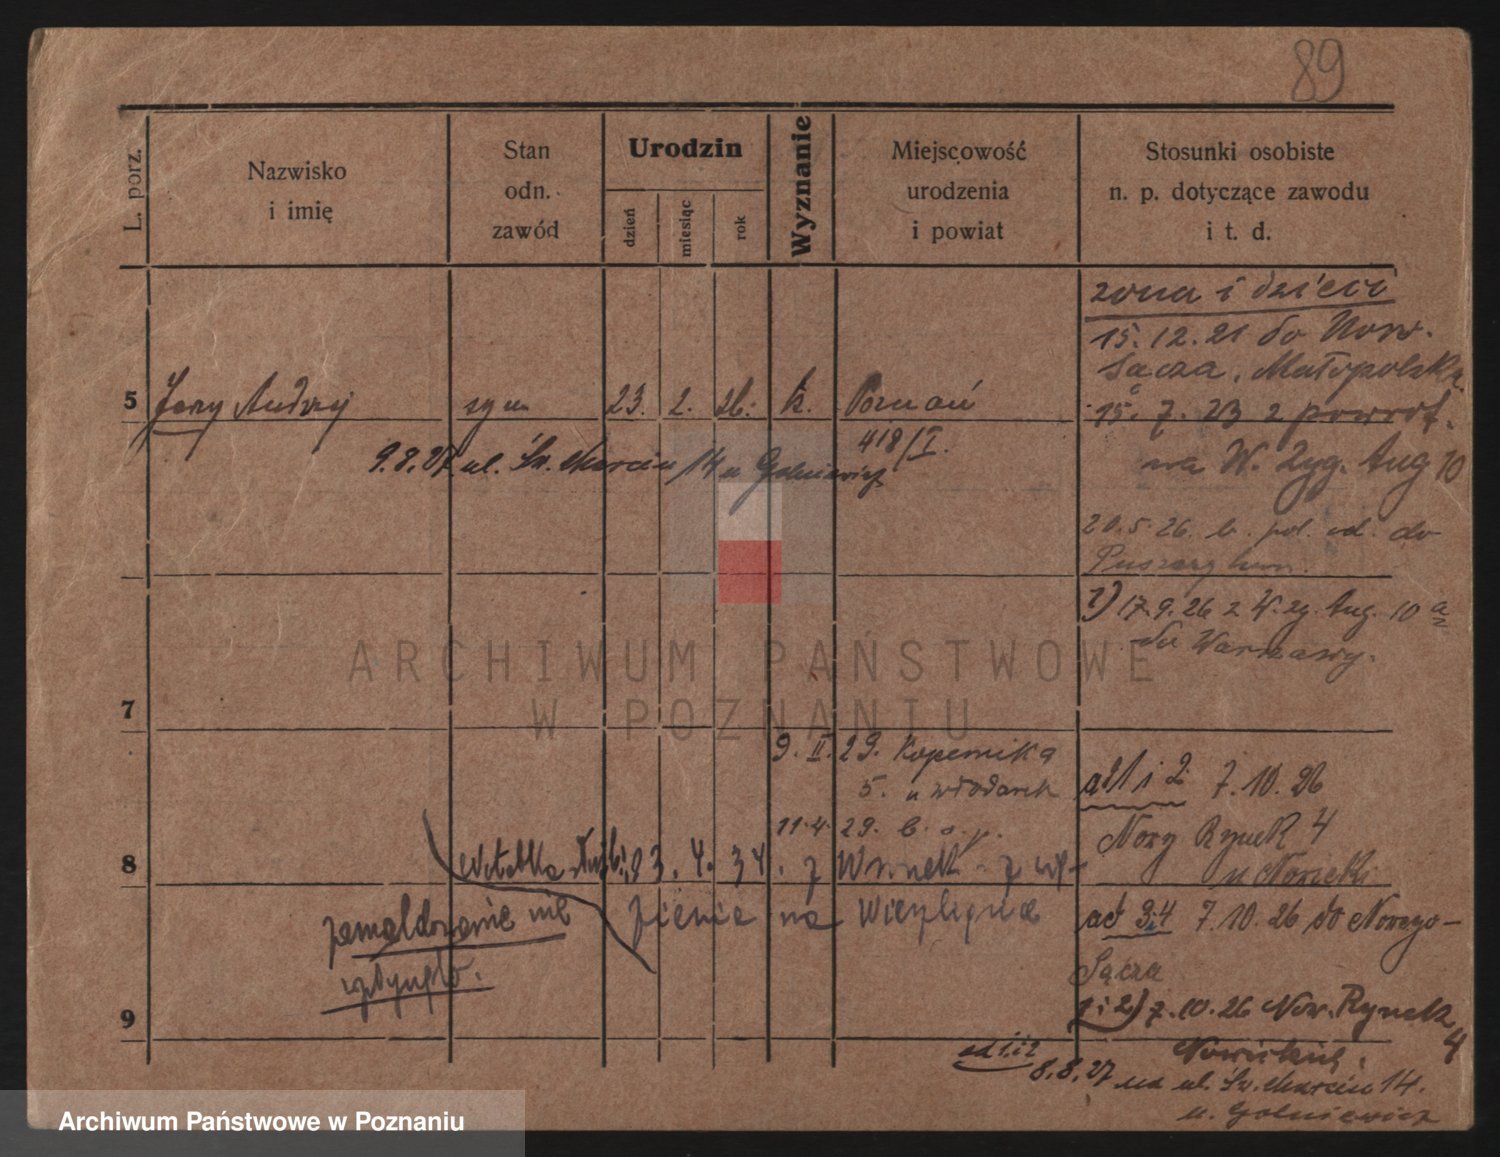 89
L. porz.
Nazwisko
i imię
Stan
odn.
zawód
Urodzin
dzień
miesiąc
rok
Wyznanie
Miejscowość
urodzenia
i powiat
Stosunki osobiste
n. p. dotyczące zawodu
i t. d.
żona i dzieci
15.12.21 do Now.
Sącza, Małopolska
5 Jerzy Andrzej syn 23. 2. 26. k. Poznań
15. 7. 23 z powrot.
418/I.
9.8.27. ul. Św. Marcin 14 u Golniewicz
na W. Zyg. Aug 10
20.5.26. b. pol. od. do
1) 17.9.26 z W. Zg. Aug. 10 a
do Warszawy.
7
9. II. 29. Kopernika
5. u Włodarek
11.4.29. b. o. p.
ad 1 i 2. 7.10.26
Nowy Rynek 4
u Nowicki
8
3. 4. 34. z
na
zameldowanie nie
wpłynęło.
ad 3i4 7.10.26 do Nowego-
Sącza
9
1 i 2) 7.10.26 Now. Rynek 4
ad 1 i 2
8.8.27 na ul. Św. Marcin 14.
u. Golniewicz
ARCHIWUM PAŃSTWOWE
W POZNANIU
Archiwum Państwowe w Poznaniu